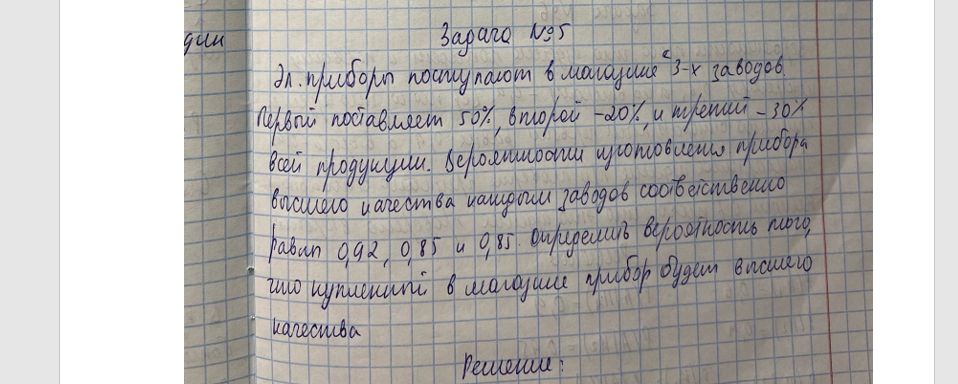 дии
Задача №5
Эл. приборы поступают в магазине с 3-х заводов.
Первый поставляет 50%, второй -20%, и третий -30%
всей продукции. Вероятности изготовления прибора
высшего качества каждым заводов соответственно
равны 0,92, 0,85 и 0,85. Определить вероятность того,
что купленный в магазине прибор будет высшего
качества
Решение: